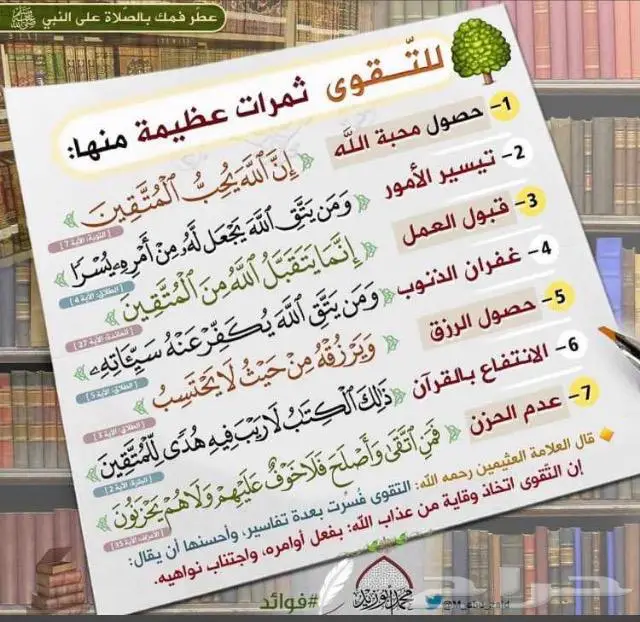 عطّر فمك بالصّلاة على النبي ﷺ
للتّقوى ثمرات عظيمة منها:
1- حصول محبة الله
﴿إِنَّ ٱللَّهَ يُحِبُّ ٱلْمُتَّقِينَ﴾
[التوبة: الآية 7]
2- تيسير الأمور
﴿وَمَن يَتَّقِ ٱللَّهَ يَجْعَل لَّهُۥ مِنْ أَمْرِهِۦ يُسْرًا﴾
[الطلاق: الآية 4]
3- قبول العمل
﴿إِنَّمَا يَتَقَبَّلُ ٱللَّهُ مِنَ ٱلْمُتَّقِينَ﴾
[المائدة: الآية 27]
4- غفران الذنوب
﴿وَمَن يَتَّقِ ٱللَّهَ يُكَفِّرْ عَنْهُ سَيِّـَٔاتِهِۦ﴾
[الطلاق: الآية 5]
5- حصول الرزق
﴿وَيَرْزُقْهُ مِنْ حَيْثُ لَا يَحْتَسِبُ﴾
[الطلاق: الآية 3]
6- الانتفاع بالقرآن
﴿ذَٰلِكَ ٱلْكِتَٰبُ لَا رَيْبَ فِيهِ هُدًى لِّلْمُتَّقِينَ﴾
[البقرة: الآية 2]
7- عدم الحزن
﴿فَمَنِ ٱتَّقَىٰ وَأَصْلَحَ فَلَا خَوْفٌ عَلَيْهِمْ وَلَا هُمْ يَحْزَنُونَ﴾
[الأعراف: الآية 35]
قال العلامة العثيمين رحمه الله: التقوى فُسرت بعدة تفاسير، وأحسنها أن يقال:
إن التقوى اتخاذ وقاية من عذاب الله: بفعل أوامره، واجتناب نواهيه.
#فوائد
محمد أبوزيد
@M_abu_zaid
حراج